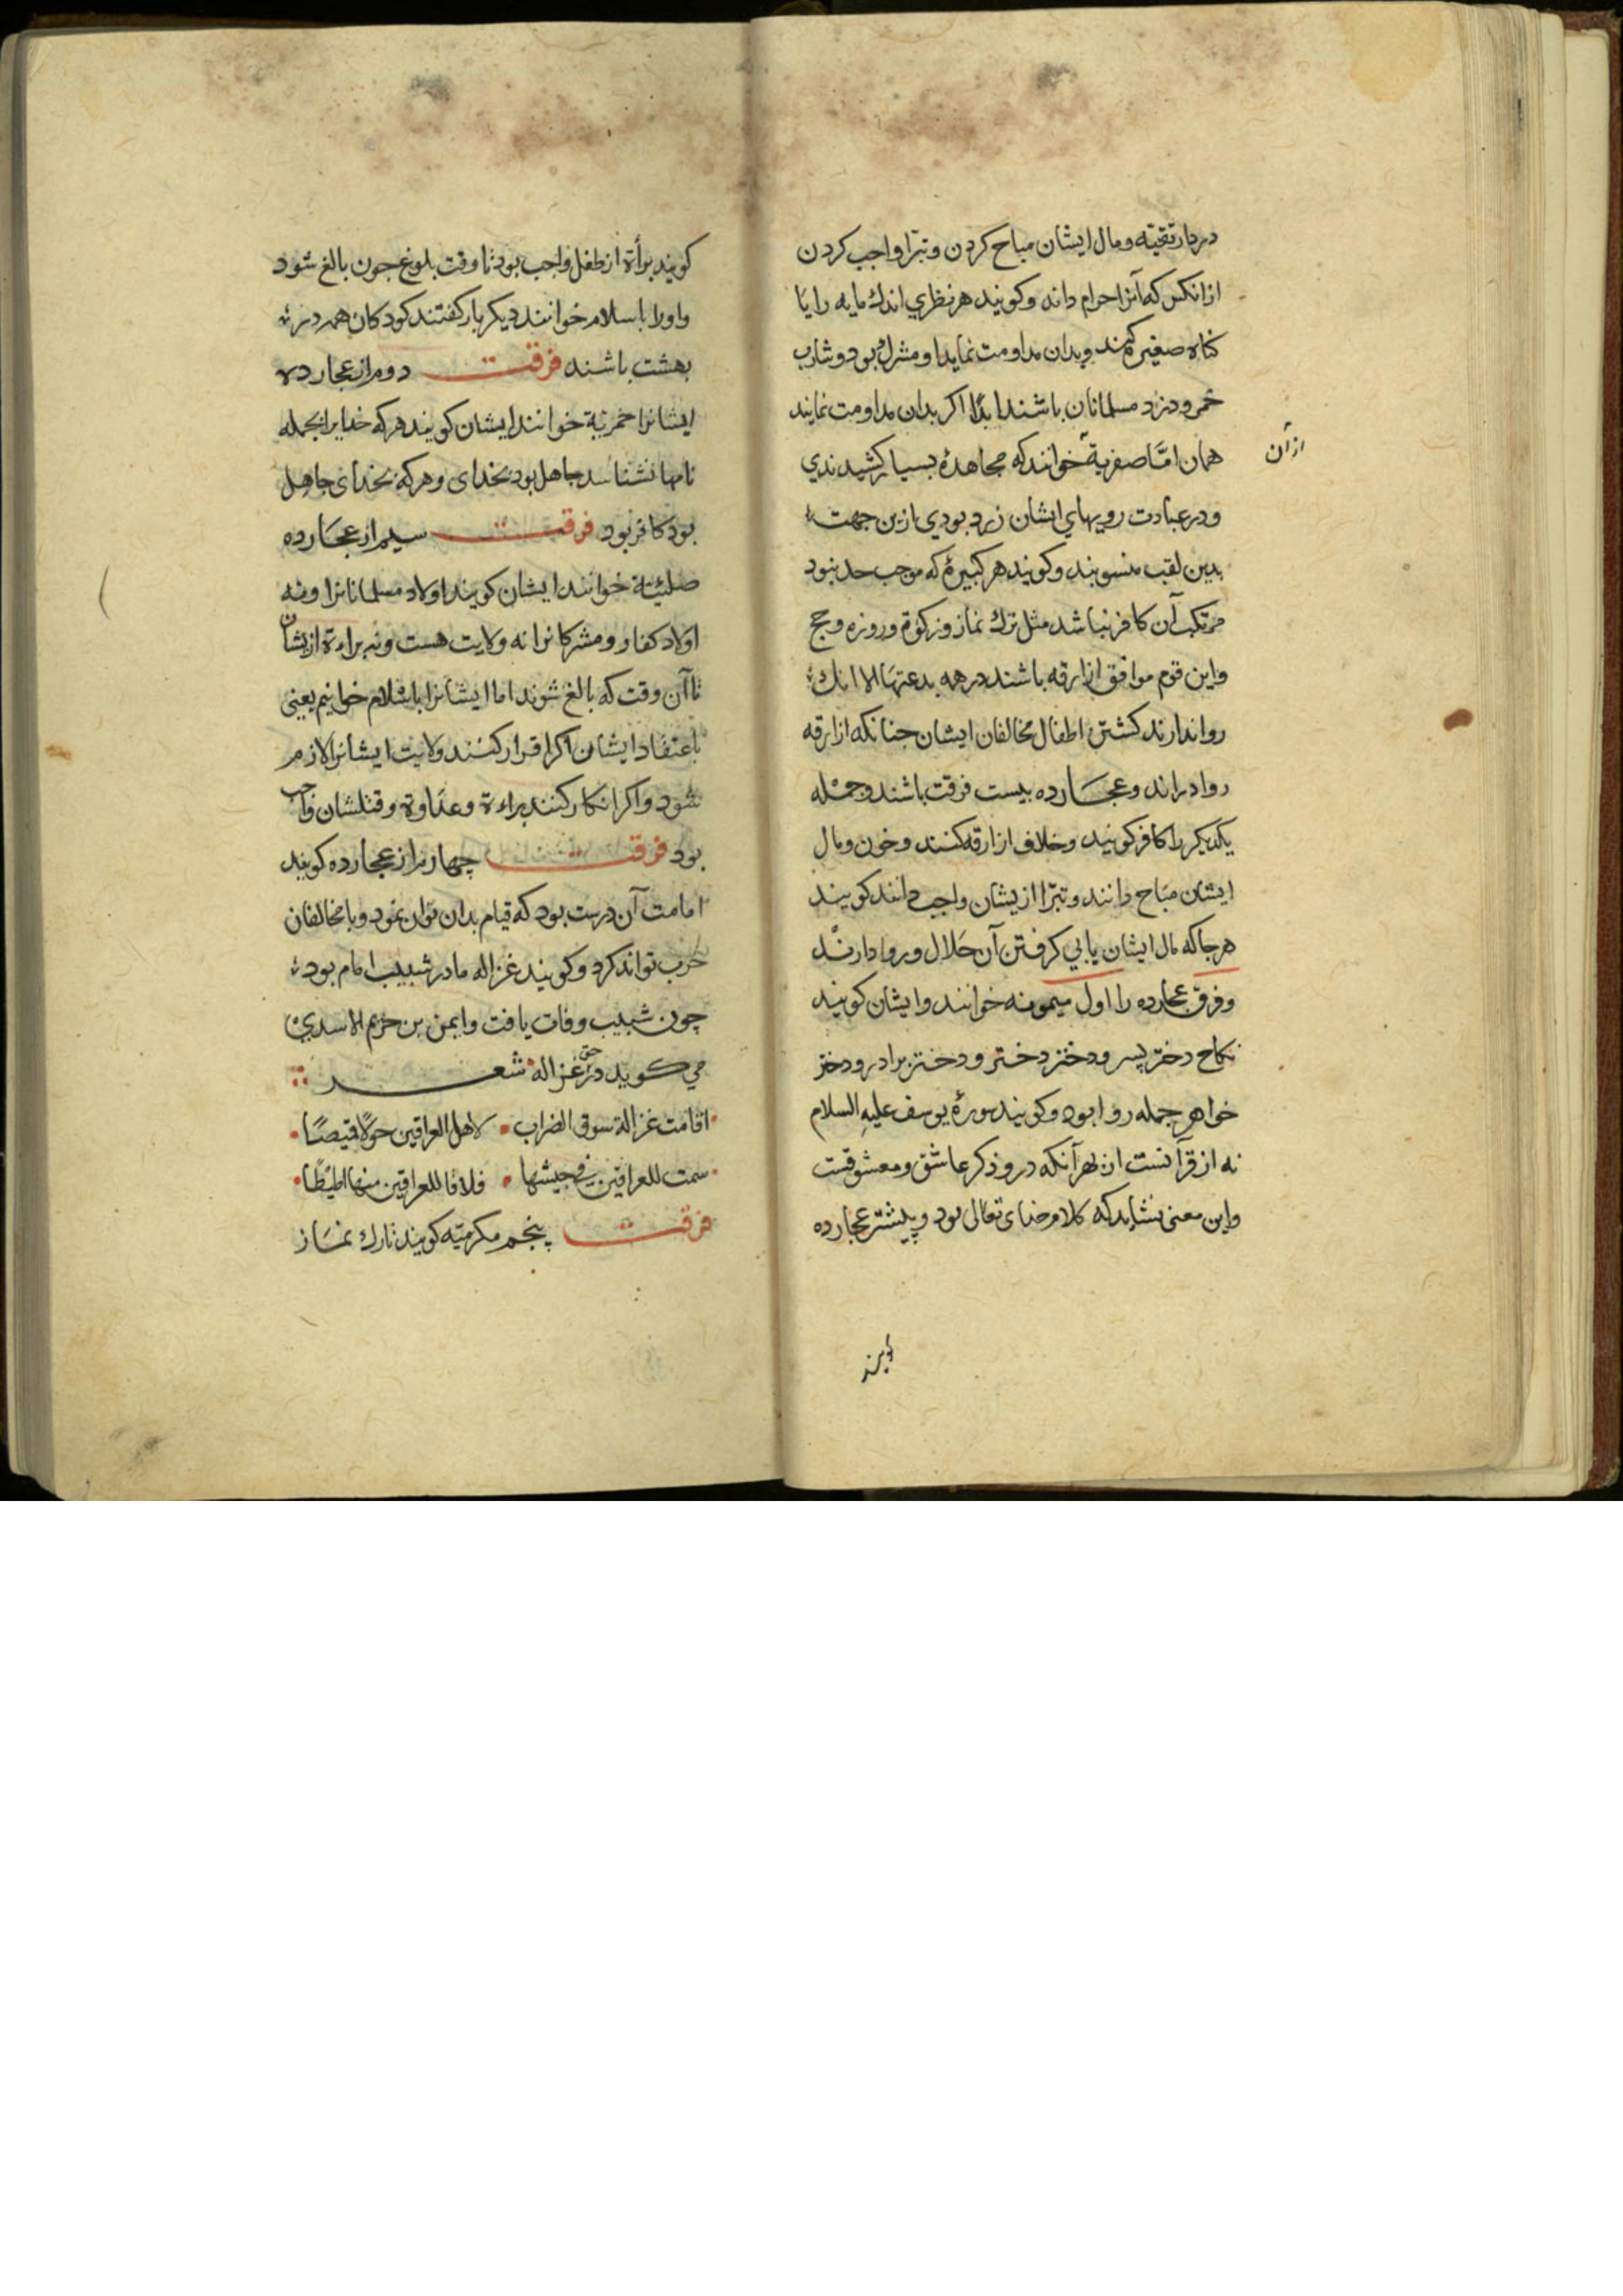 در دار تقیّه ومال ایشان مباح کردن وتبرّا واجب کردن
از انکس که آنرا حرام داند وکویند هر نظری اندك مایه را یا
کناه صغیره کند وبدان مداومت نماید او مشرك بود وشارب
خمر ودزد مسلمانان باشند ابدًا اکر بدان مداومت نمایند
همان امّا صفریة خوانند که مجاهدهٔ بسیار کشیدندی
از آن
ودر عبادت رویهای ایشان زرد بودی ازین جهت
بدین لقب منسوبند وکویند هر کبیرهٔ که موجب حد نبود
مرتکب آن کافر نباشد مثل ترك نماز وزکوة وروزه وحج
واین قوم موافق ازارقه باشند در همه بدعتها الا انك
روا ندارند کشتن اطفال مخالفان ایشان جنانکه ازارقه
روا دراند وعجارده بیست فرقت باشند وجمله
یکدیکر را کافر کویند وخلاف ازارقه کنند وخون ومال
ایشان مباح دانند وتبرّا ازیشان واجب دانند کویند
هرجا که مال ایشان یابی کرفتن آن حلال وروا دارند
وفرق عجارده را اول میمونه خوانند وایشان کویند
نکاح دختر پسر ودختر دختر ودختر برادر ودختر
خواهر جمله روا بود وکویند سورهٔ یوسف علیه السلام
نه از قرآنست از بهر آنکه درو ذکر عاشق ومعشوقست
واین معنی نشاید که کلام خدای تعالی بود وپیشتر عجارده
کویند برأة از طفل واجب بود تا وقت بلوغ جون بالغ شود
واورا باسلام خوانند دیکر بار کفتند کودکان همه در
بهشت باشند فرقت دوم از عجارده
ایشانرا خمریة خوانند ایشان کویند هرکه خدایرا بجمله
نامها نشناسد جاهل بود بخدای وهرکه بخدای جاهل
بود کافر بود فرقت سیم از عجارده
صلیتة خوانند ایشان کویند اولاد مسلمانانرا ونه
اولاد کفار ومشرکانرا نه ولایت هست ونه براءة ازیشان
تا آن وقت که بالغ شوند اما ایشانرا باسلام خوانیم یعنی
باعتقاد ایشان اکر اقرار کنند ولایت ایشانرا لازم
شود واکر انکار کنند براءة وعداوة وقتلشان واجب
بود فرقت چهارم از عجارده کویند
امامت آن درست بود که قیام بدان تواند نمود وبا مخالفان
حرب تواند کرد وکویند غزاله مادر شبیب امام بود
چون شبیب وفات یافت وایمن بن خریم الاسدی
می کوید در حق غزاله شعر
اقامت غزالة سوق الضراب لاهل العراقین حولا قمیصًا
سمت للعراقین فی جیشها فلاقا للعراقین منها اطیطًا
فرقت پنجم مکرمیّه کویند تارك نماز